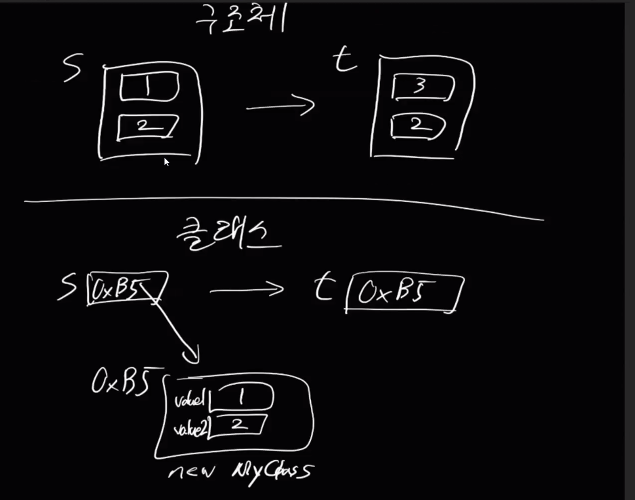 구조체
s 1 2 t 3 2
클래스
s 0xB5 t 0xB5
0xB5
value1 1
value2 2
new MyClass